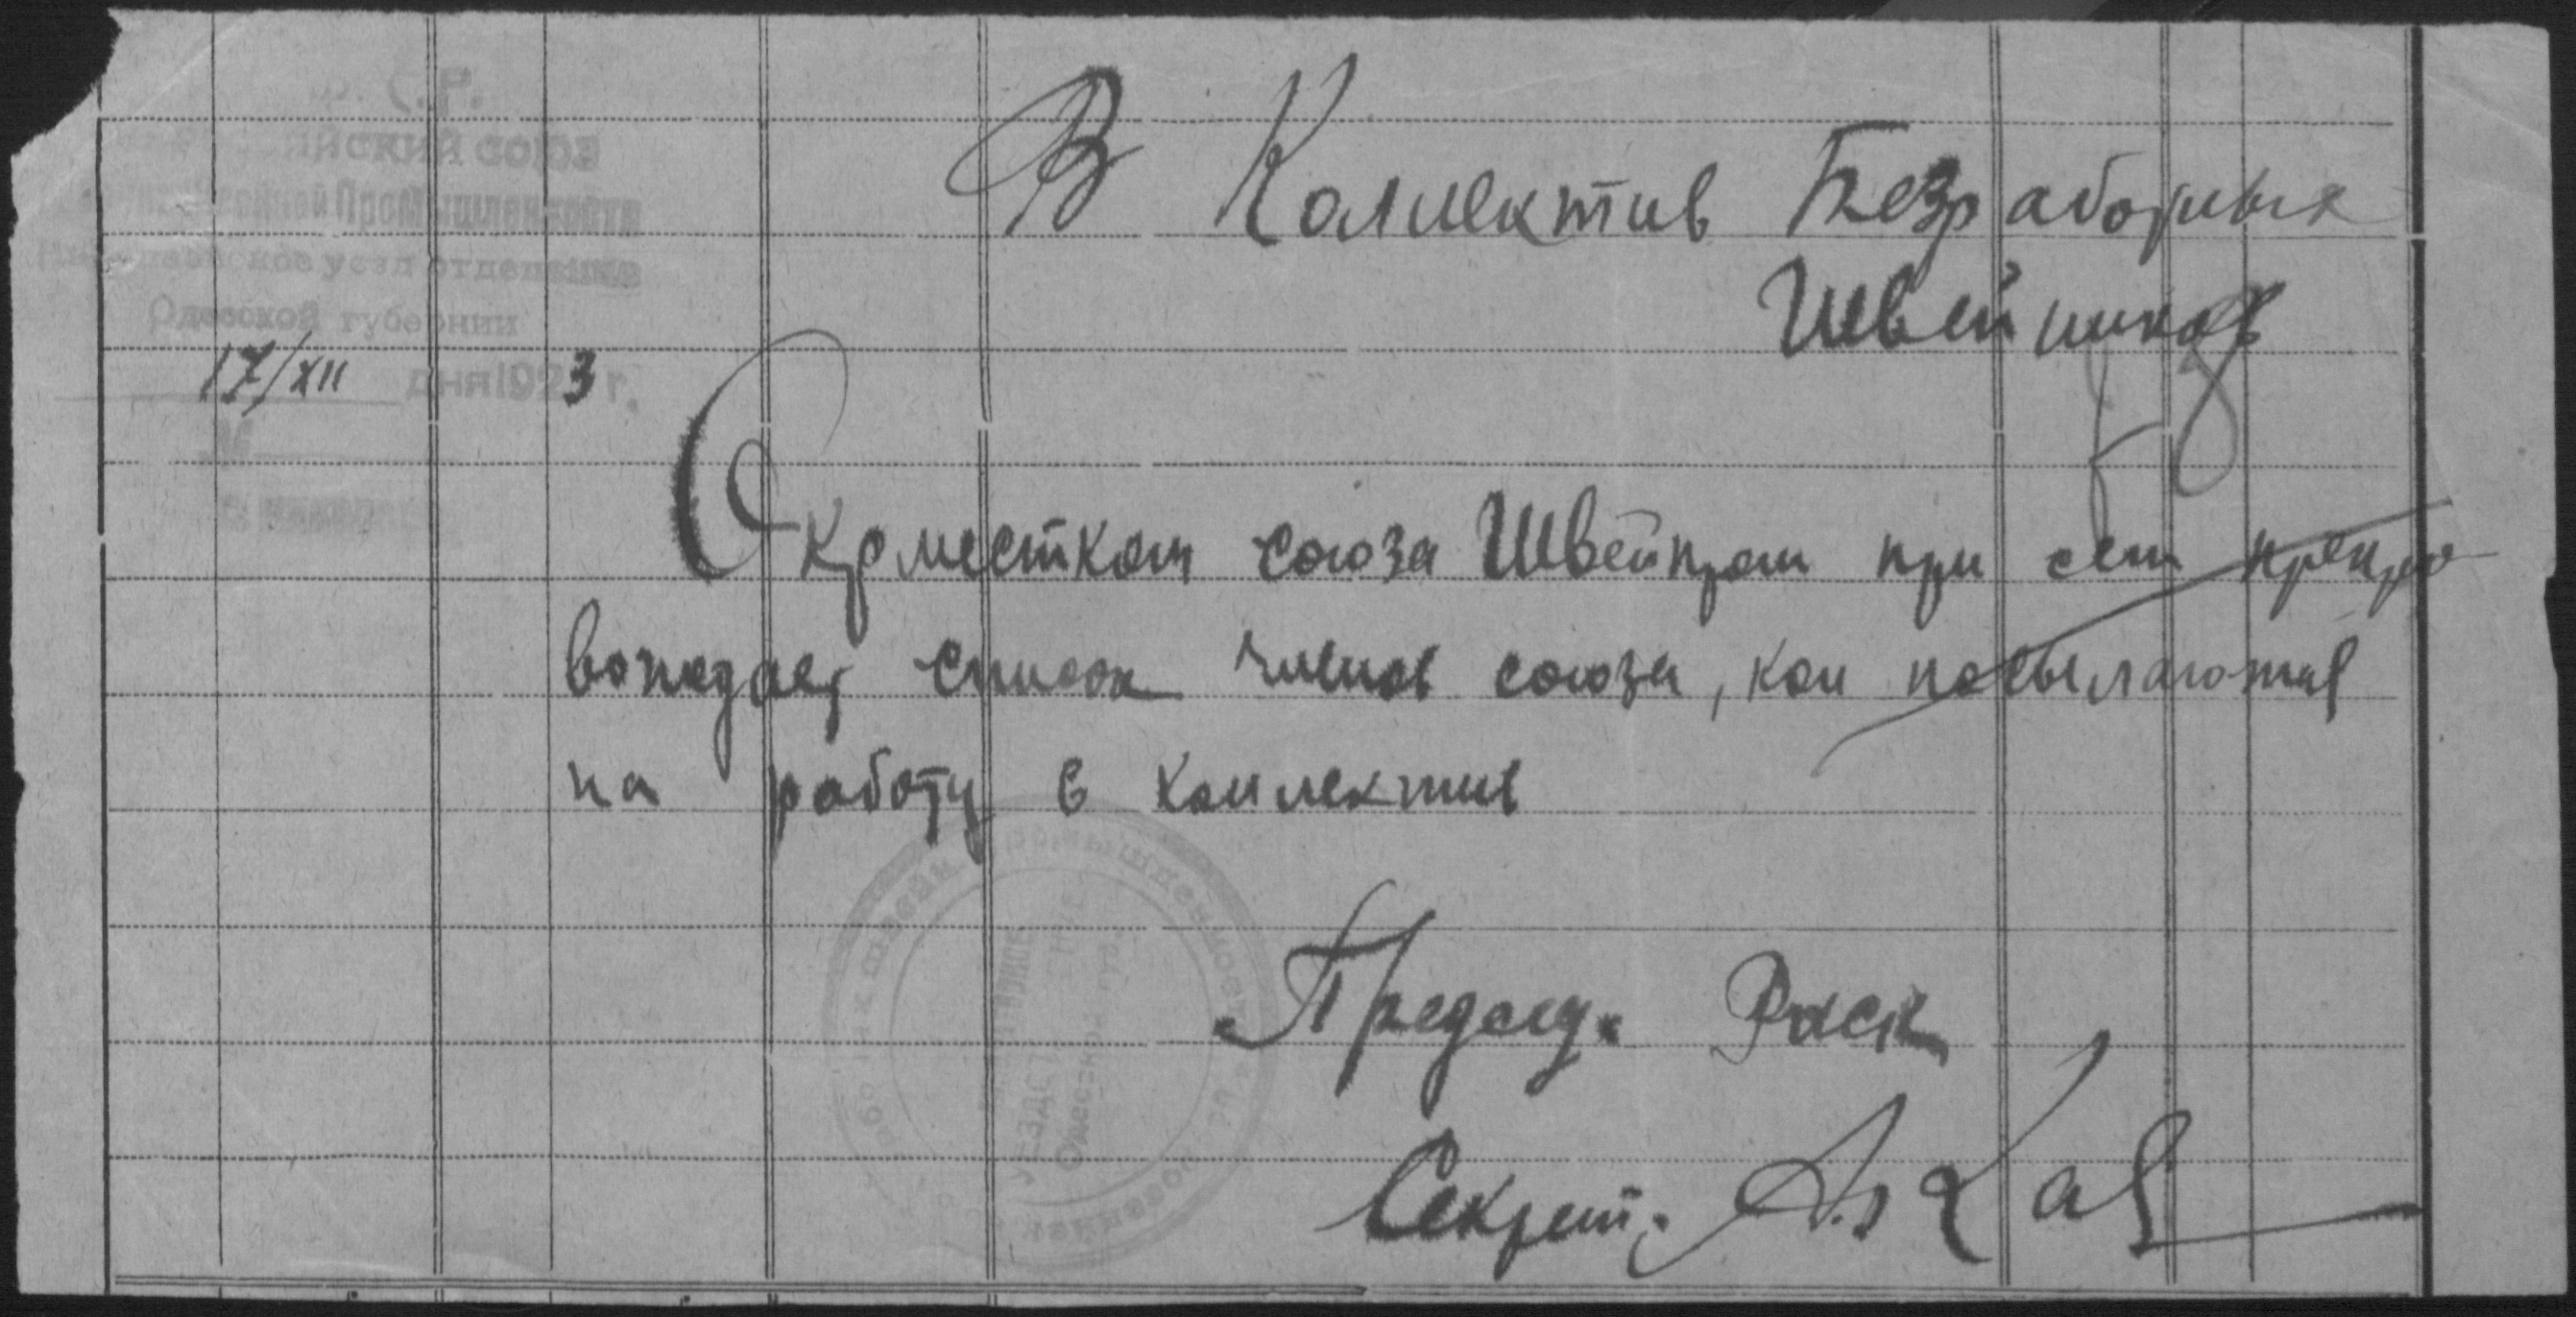 С.Р.
союз
Швейной Промышленности
уезд отделение
Одесской губернии
17/XII дня 1923 г.
№
В Коллектив Безработных
Швейников
Окрместком союза Швейпром при сем препро
вождает список членов союза, кои посылаются
на работу в коллектив
Председ.
Секрет.